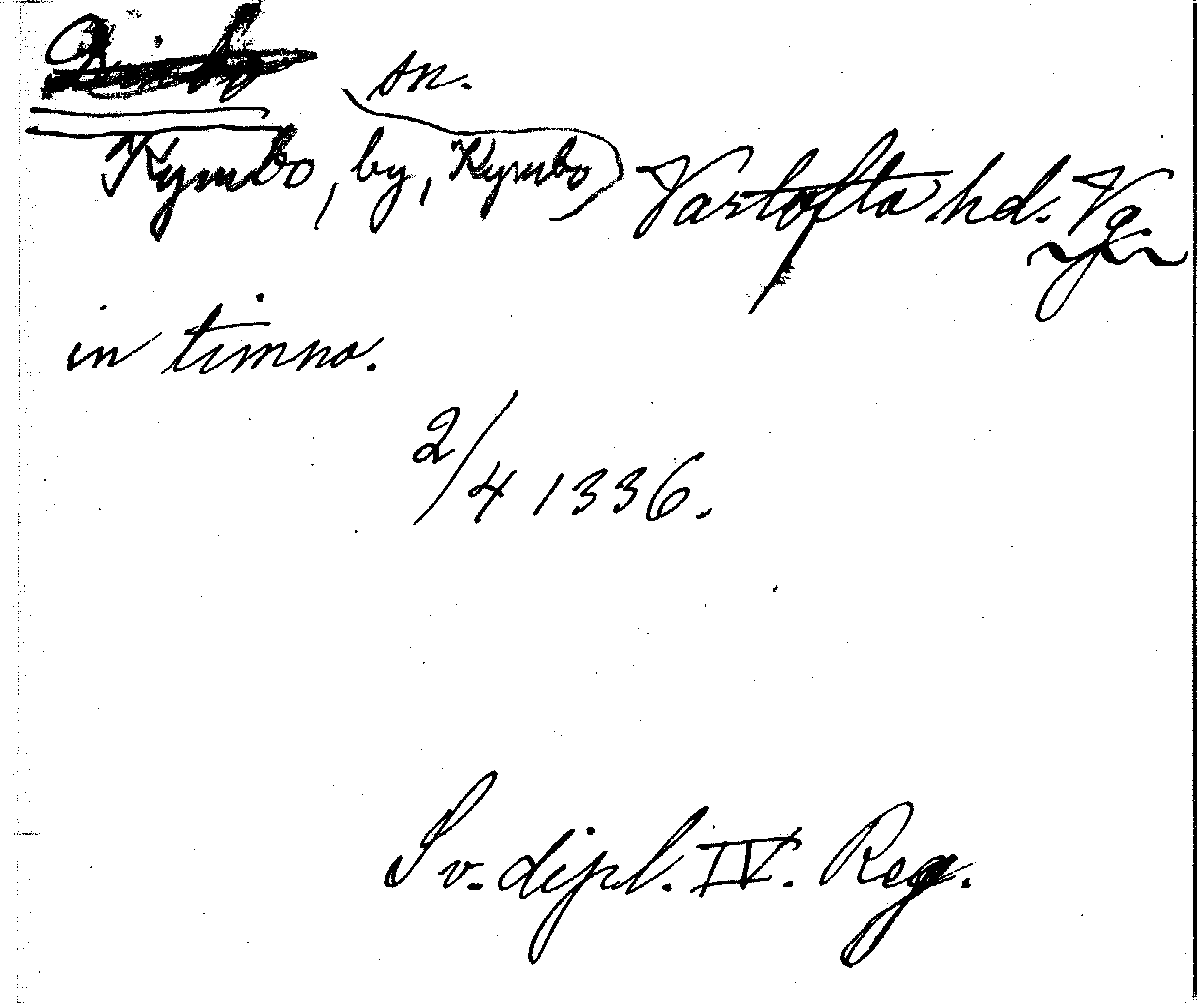 sn.
Kymbo, by, Kymbo, Vartofta hd. Vg.
in timno.
2/4 1336.
Sv. dipl. IV. Reg.